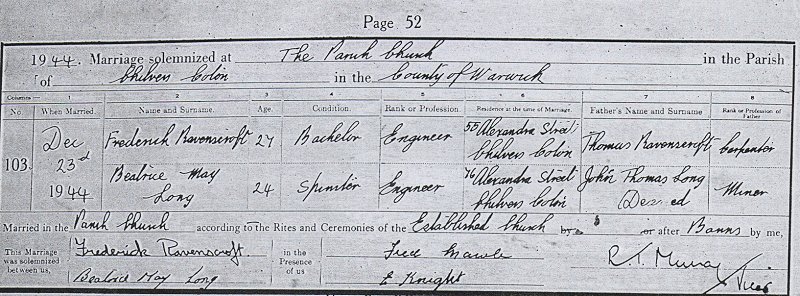 Page 52
1944. Marriage solemnized at The Parish Church in the Parish
of Chilvers Coton in the County of Warwick
Columns:— 1 2 3 4 5 6 7 8
No. When Married. Name and Surname. Age. Condition. Rank or Profession. Residence at the time of Marriage. Father's Name and Surname Rank or Profession of Father
103. Dec 23rd 1944 Frederick Ravenscroft 27 Bachelor Engineer Alexandra Street Chilvers Coton Thomas Ravenscroft Carpenter
Beatrice May Long 24 Spinster Engineer 76 Alexandra Street Chilvers Coton John Thomas Long Miner
Married in the Parish Church according to the Rites and Ceremonies of the Established Church by or after Banns by me,
This Marriage was solemnized between us, Frederick Ravenscroft. in the Presence of us Fred R. T. Murray
Beatrice May Long E Knight Vicar